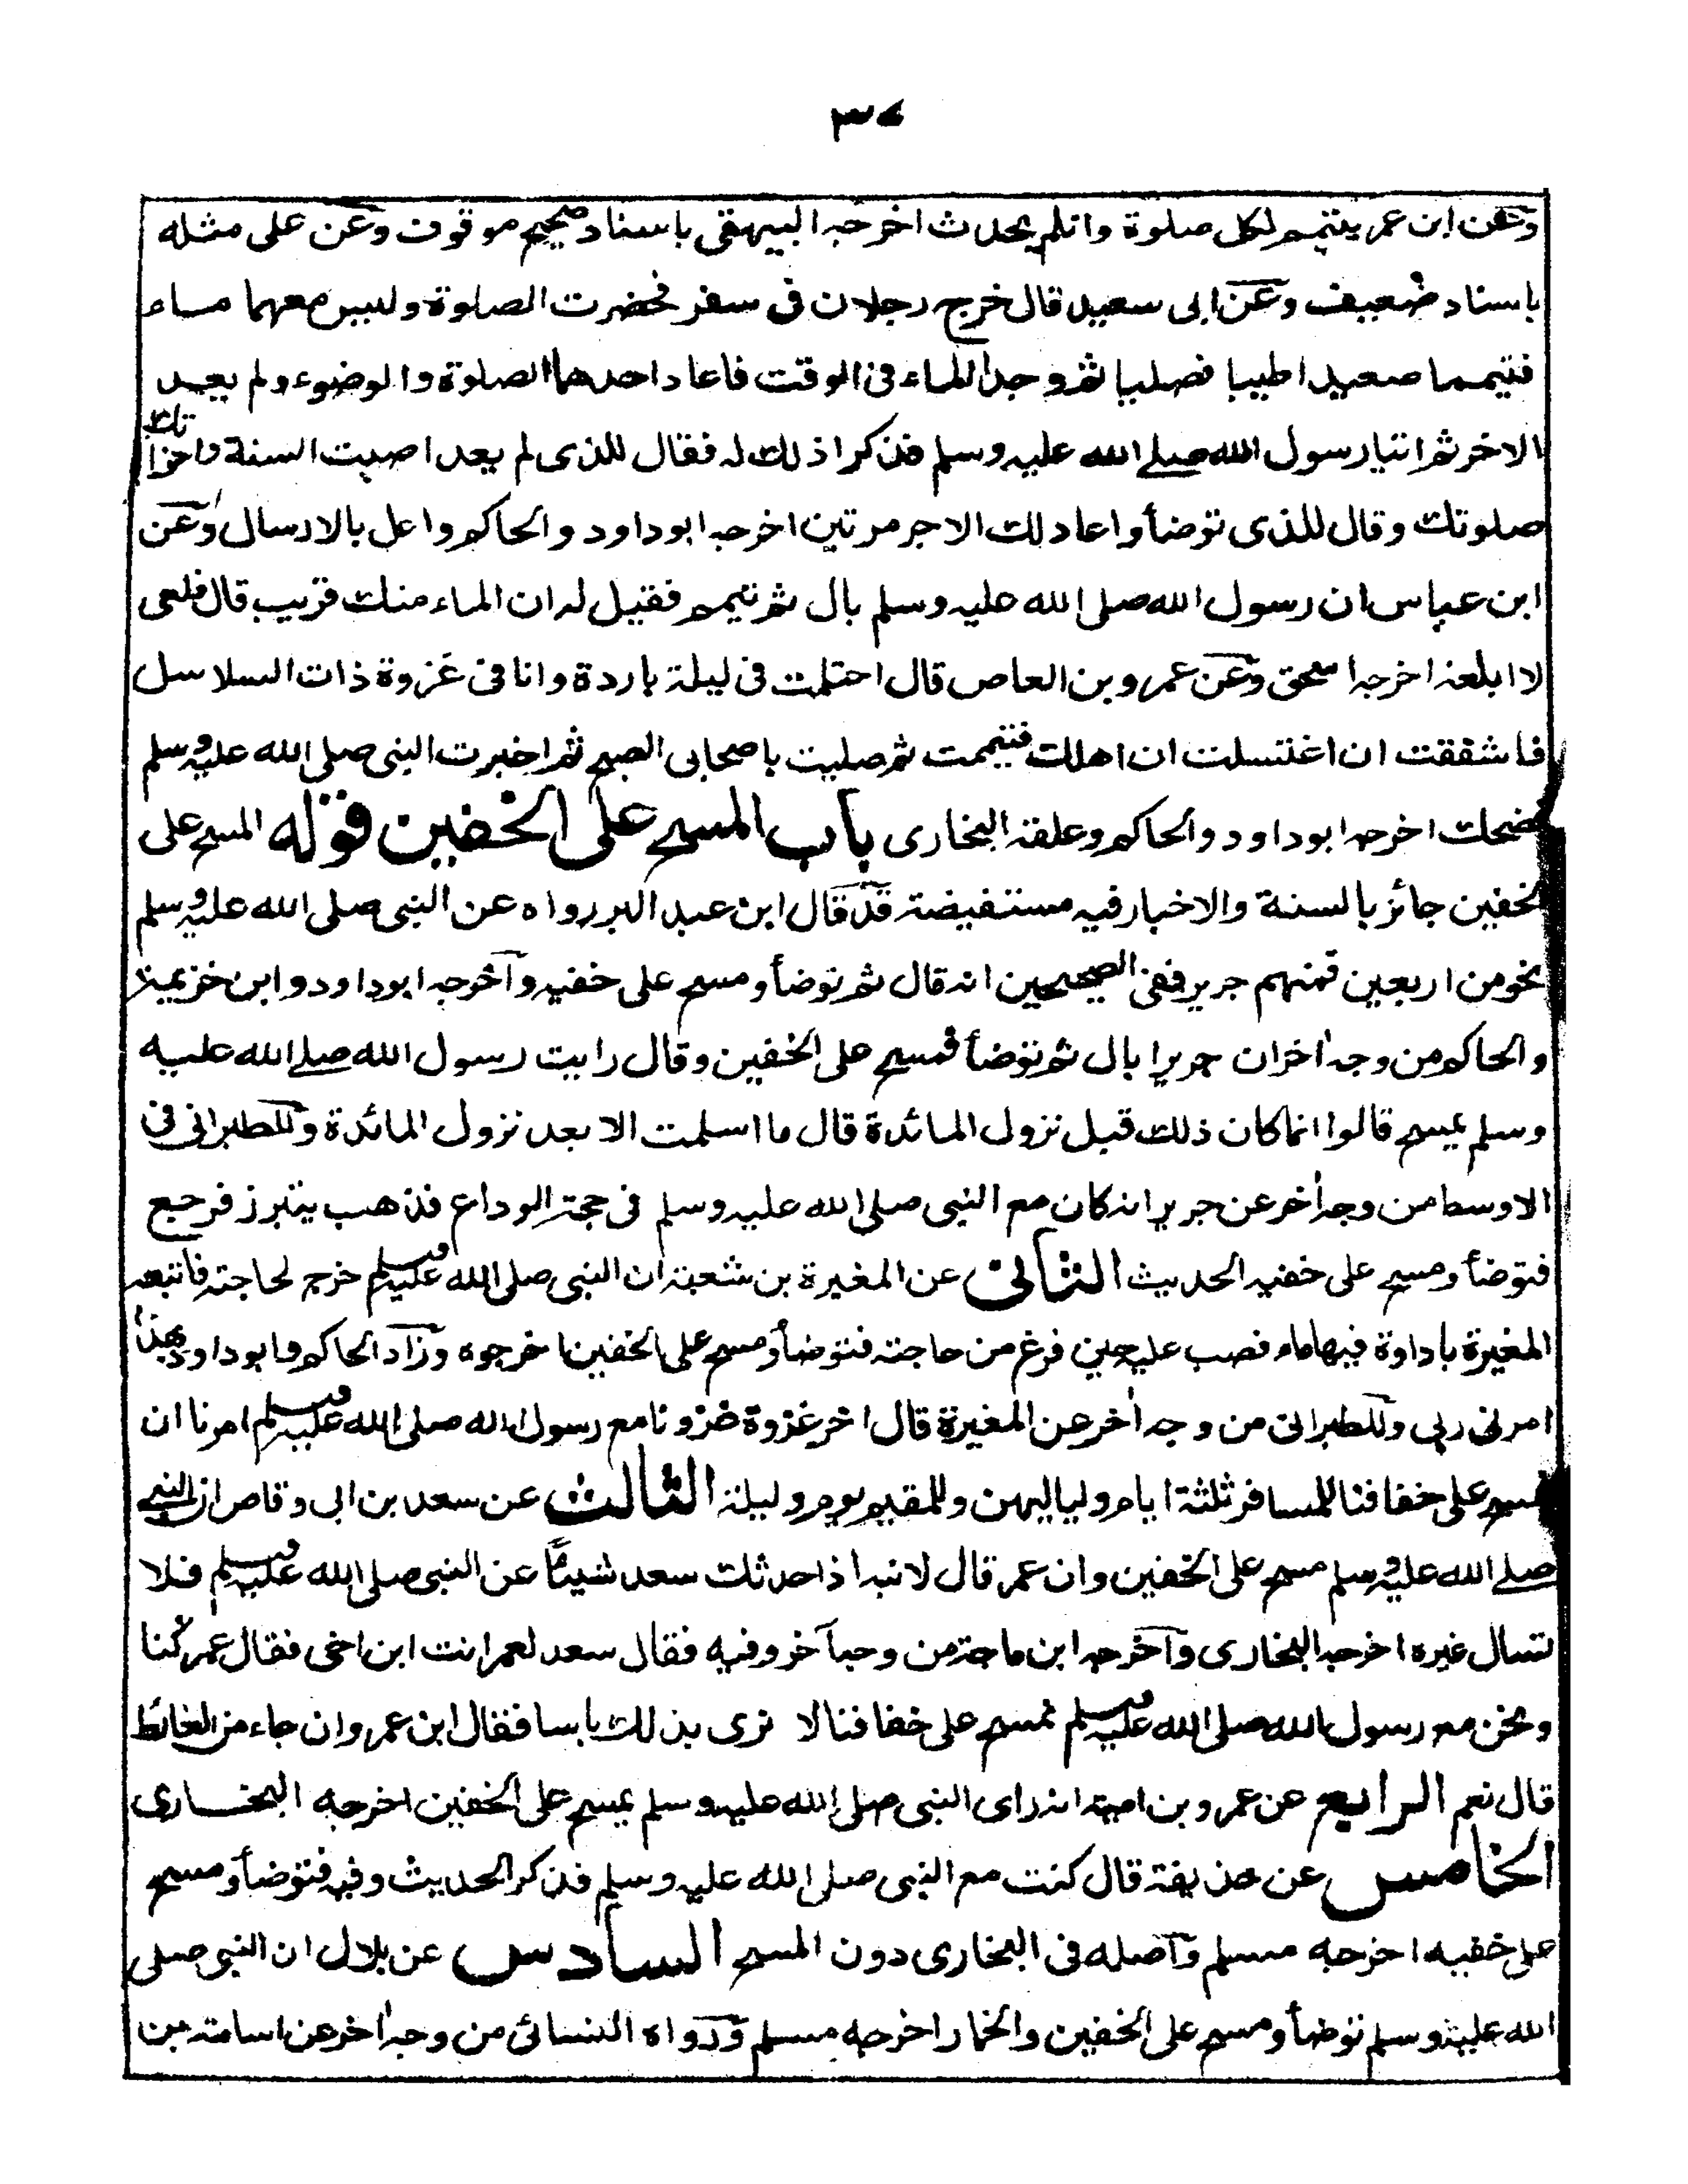 ٣٧
وعن ابن عمر يتيمم لكل صلوة وان لم يحدث اخرجه البيهقى باسناد صحيح موقوف وعن على مثله
باسناد ضعيف وعن ابى سعيد قال خرج رجلان فى سفر فحضرت الصلوة وليس معهما ماء
فتيمما صعيدا طيبا فصليا ثم وجدا الماء فى الوقت فاعاد احدهما الصلوة والوضوء ولم يعد
الاخر ثم اتيا رسول الله صلے الله عليه وسلم فذكرا ذلك له فقال للذى لم يعد اصبت السنة واجزأتك
صلوتك وقال للذى توضأ واعاد لك الاجر مرتين اخرجه ابو داود والحاكم واعل بالارسال وعن
ابن عباس ان رسول الله صلى الله عليه وسلم بال ثم تيمم فقيل له ان الماء منك قريب قال فلعلى
لا ابلغه اخرجه اسحق وعن عمرو بن العاص قال احتلمت فى ليلة باردة وانا فى غزوة ذات السلاسل
فاشفقت ان اغتسلت ان اهلك فتيممت ثم صليت باصحابى الصبح ثم اخبرت النبى صلى الله عليه وسلم
فضحك اخرجه ابو داود والحاكم وعلقه البخارى باب المسح على الخفين قوله المسح على
الخفين جائز بالسنة والاخبار فيه مستفيضة قد قال ابن عبد البر رواه عن النبى صلى الله عليه وسلم
نحو من اربعين فمنهم جرير ففى الصحيحين انه قال ثم توضأ ومسح على خفيه وآخرجه ابو داود وابن خزيمة
والحاكم من وجه اخر ان جريرا بال ثم توضأ فمسح على الخفين وقال رايت رسول الله صلے الله عليه
وسلم يمسح قالوا انما كان ذلك قبل نزول المائدة قال ما اسلمت الا بعد نزول المائدة وللطبرانى فى
الاوسط من وجه أخر عن جرير انه كان مع النبى صلى الله عليه وسلم فى حجة الوداع فذهب يتبرز فرجع
فتوضأ ومسح على خفيه الحديث الثانى عن المغيرة بن شعبة ان النبى صلى الله عليه وسلم خرج لحاجته فاتبعه
المغيرة باداوة فيها ماء فصب عليه حين فرغ من حاجته فتوضأ ومسح على الخفين اخرجوه وزاد الحاكم وابو داود بهذا
امرنى ربى وللطبرانى من وجه أخر عن المغيرة قال اخر غزوة غزونا مع رسول الله صلى الله عليه وسلم امرنا ان
نمسح على خفافنا للمسافر ثلثة ايام ولياليهن وللمقيم يوم وليلة الثالث عن سعد بن ابى وقاص ان النبى
صلے الله عليه وسلم مسح على الخفين وان عمر قال لابنه اذا حدثك سعد شيئا عن النبى صلى الله عليه وسلم فلا
تسال غيره اخرجه البخارى وآخرجه ابن ماجة من وجه آخر وفيه فقال سعد لعمر انت ابن اخى فقال عمر كنا
ونحن مع رسول الله صلى الله عليه وسلم نمسح على خفافنا لا نرى بذلك باسا فقال ابن عمر وان جاء من الغائط
قال نعم الرابع عن عمرو بن امية انه راى النبى صلى الله عليه وسلم يمسح على الخفين اخرجه البخارى
الخامس عن حذيفة قال كنت مع النبى صلى الله عليه وسلم فذكر الحديث وفيه فتوضأ ومسح
على خفيه اخرجه مسلم وآصله فى البخارى دون المسح السادس عن بلال ان النبى صلى
الله عليه وسلم توضأ ومسح على الخفين والخمار اخرجه مسلم ورواه النسائى من وجه أخر عن اسامة بن